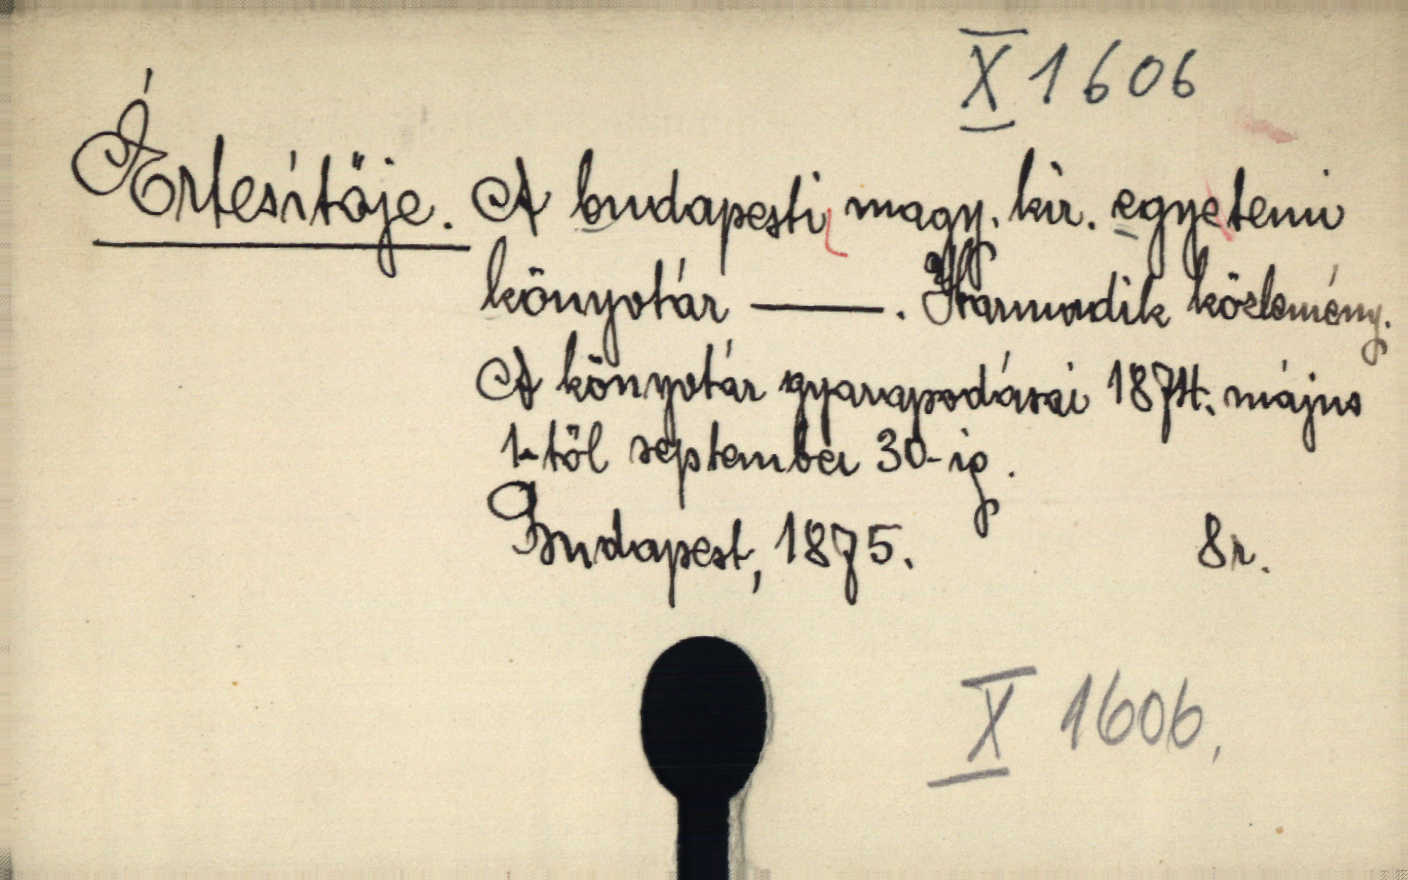 X 1606
Értesítője. A budapesti magy. kir. egyetemi
könyvtár ———. Harmadik közlemény.
A könyvtár gyarapodásai 1874. május
1-től september 30-ig.
Budapest, 1875. 8r.
X 1606.